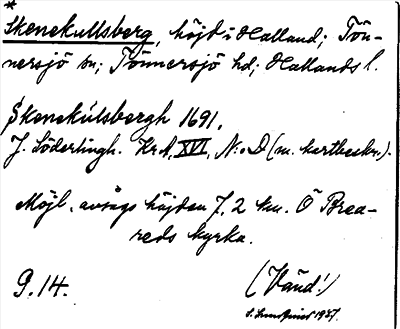 *
Skenekullsberg, höjd i Halland; Tön-
nersjö sn; Tönnersjö hd; Hallands l.
Skenekúlsbergh 1691.
J. Söderlingh. Kr.A, XVI, N:o D (m. kartbeskr.).
Möjl. avsågs höjden 7,2 km. Ö Brea-
reds kyrka.
9.14.
(Vänd!)
1937.